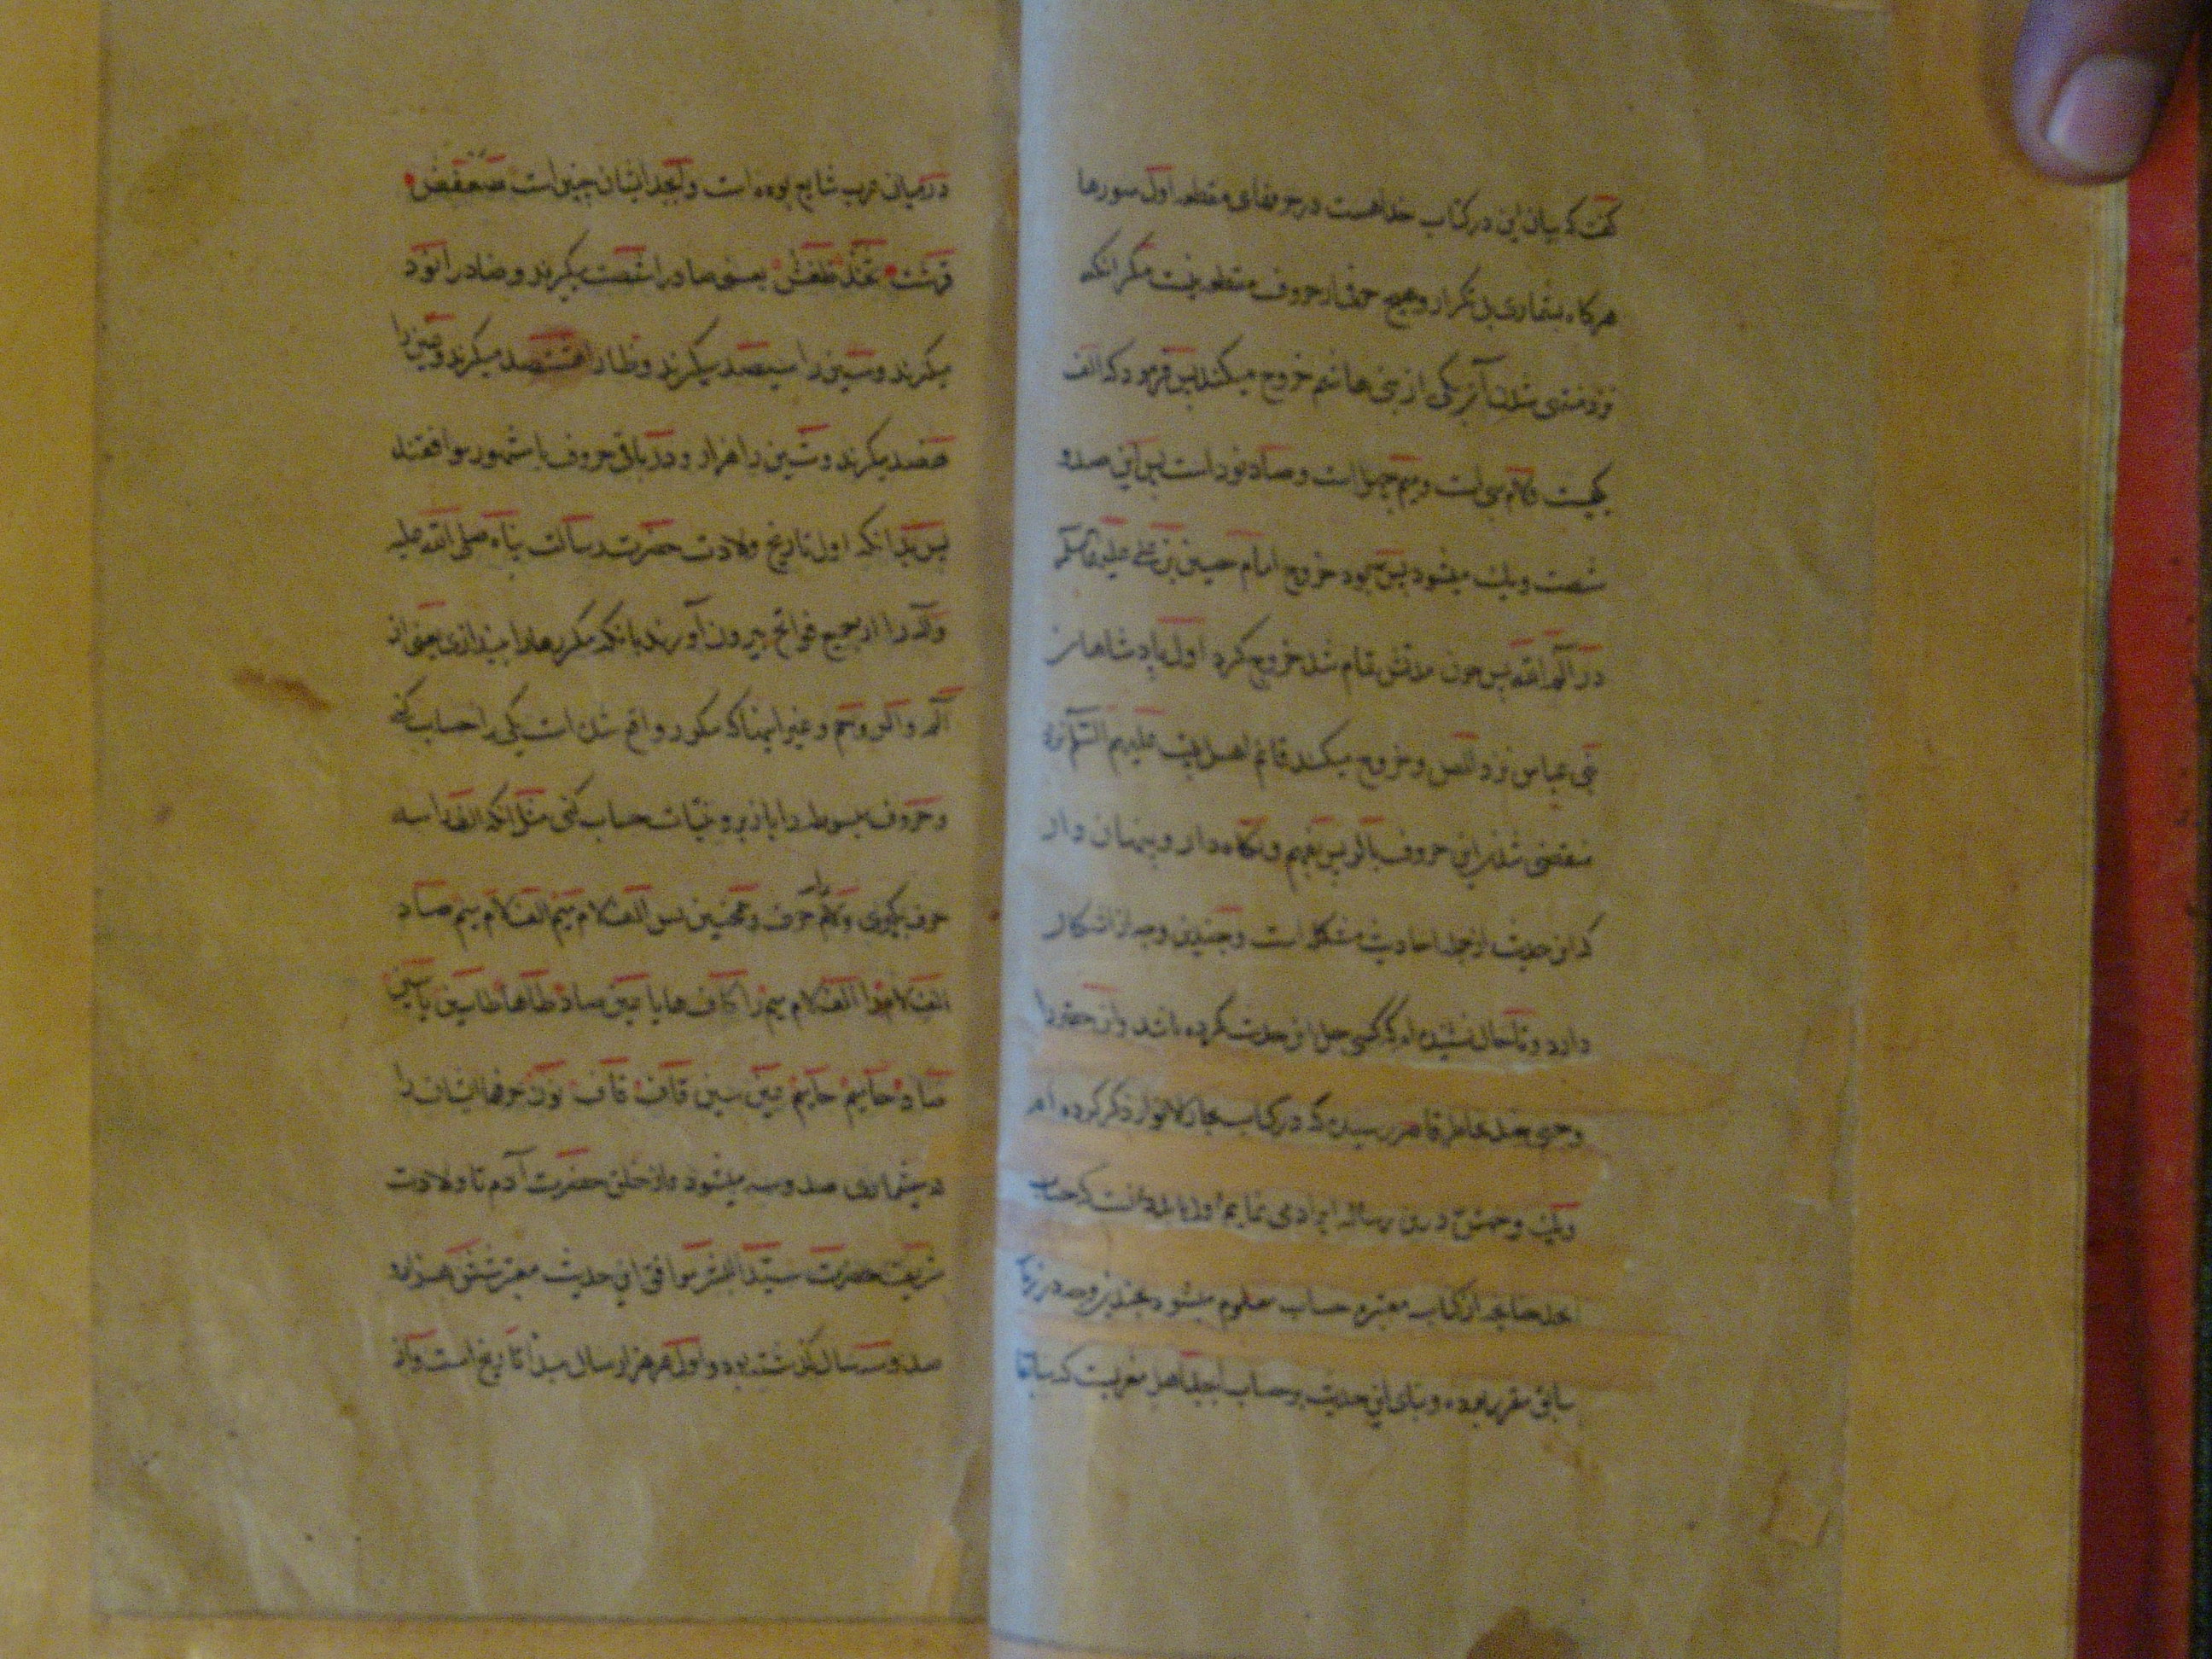 گفت که بیان این در کتاب خدا هست در حرفهای مقطعه اول سورها
هرگاه بشماری بی تکرار و هیچ حرفی از حروف مقطعه نیست مگر آنکه
نزد منقضی شدن آن یکی از بنی هاشم خروج میکند پس فرمود که الف
یکیست و لام سی است و میم چهل است و صاد نود است پس این صد و
شصت و یک میشود پس بود خروج امام حسین بن علی علیه السلام
در الم الله پس چون مدتش تمام شد خروج کرد اول پادشاهان
بنی عباس نزد المص و خروج میکند قائم اهل بیت علیهم السلام نزد
منقضی شدن این حروف بالر پس بفهم و نگاه دار و پنهان دار
که این حدیث از جمله احادیث مشکله است و چندین وجه از اشکال
دارد و تا حال نشنیده ام که کسی حل این حدیث کرده باشد و این حقیر را
وجهی چند بخاطر قاصر رسیده که در کتاب بحار الانوار ذکر کرده ام
و یک وجهش درین رساله ایراد می نمایم اولا باید دانست که حساب
ابجد چنانچه از کتاب معتبره حساب معلوم میشود بچندین وجه در زمان
سابق مقرر بوده و بنای این حدیث بر حساب ابجد اهل مغربست که سابقا
در میان عرب شایع بوده است و ابجد ایشان چنین است صعفض
قرست ثخذ ظغش یعنی صاد را شصت میگیرند و ضاد را نود
میگیرند و سین را سیصد میگیرند و ظا را هشتصد میگیرند و غین را
نهصد میگیرند و شین را هزار و در باقی حروف با مشهور موافقند
پس بدانکه اول تاریخ ولادت حضرت رسالت پناه صلی الله علیه
و آله را از جمیع فواتح بیرون آورند بآنکه مکررها را بیندازی یعنی از
الم و الر و حم و غیر اینها که مکرر واقع شده است یکی را حساب کنی
و حروف مبسوطه را با زبر و بینات حساب کنی مثل آنکه الف را سه
حرف بگیری و لام را سه حرف و همچنین پس الف لام میم الف لام میم صاد
الف لام را الف لام میم را کاف ها یا عین صاد طا ها طا سین یا سین
صاد حا میم حا میم عین سین قاف قاف نون حرفهای ایشان را
که بشماری صد و سه میشود و از خلق حضرت آدم تا ولادت
شریف حضرت سید البشر موافق این حدیث معتبر شش هزار و
صد و سه سال گذشته بود و اول هر هزار سال مبدأ تاریخ است و از